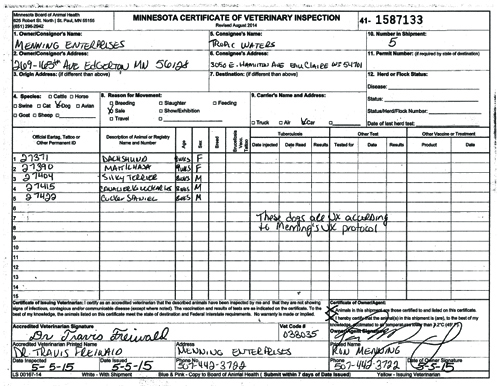 Minnesota Board of Animal Health
625 Robert Street N. St. Paul, MN 55155
(651) 296-2942
MINNESOTA CERTIFICATE OF VETERINARY INSPECTION
Revised August 2014
41- 1587133
1. Owner/Consignor's Name:
Menning Enterprises
5. Consignee's Name:
Tropic Waters
10. Number in Shipment:
5
2. Owner/Consignor's Address:
269-165th Ave Edgerton MN 56128
6. Consignee's Address:
3050 E. Hamilton Ave Eau Claire WI 54701
11. Permit Number: (if required by state of destination)
3. Origin Address: (if different than above)
7. Destination: (if different than above)
12. Herd or Flock Status:
Disease:
Status:
Status/Herd/Flock Number:
Date of last herd test:
4. Species: Cattle Horse
Swine Cat Dog Avian
Goat Sheep
8. Reason for Movement:
Breeding Slaughter Feeding
Sale Show/Exhibition
Travel
9. Carrier's Name and Address:
Truck Air Car
Official Eartag, Tattoo or Other Permanent ID
Description of Animal or Registry Name and Number
Age
Sex
Breed
Brucellosis Vacc. Tattoo
Tuberculosis
Date Injected Date Read Results
Other Test
Tested for Date Results
Other Vaccine or Treatment
Product Date
1 27371 Dachshund 8wks F
2 27390 8wks F
3 27404 Silky Terrier 8wks M
4 27415 8wks M
5 27422 Cocker Spaniel 8wks M
6
7
8
9
10
11
12
13
14
15
These dogs are UX according
to Menning's UX protocol
Certificate of Issuing Veterinarian: I certify as an accredited veterinarian that the described animals have been inspected by me and that they are not showing
signs of infectious, contagious and/or communicable disease (except where noted). The vaccination and results of tests are as indicated on the certificate. To the
best of my knowledge, the animals listed on this certificate meet the state of destination and Federal interstate requirements. No warranty is made or implied.
Certificate of Owner/Agent:
Animals in this shipment are those certified to and listed on this certificate.
Accredited Veterinarian Signature
Dr Travis Freiwald
Vet Code #
038035
Accredited Veterinarian Printed Name
DR. TRAVIS FREIWALD
Menning Enterprises
Printed Name
Ron Menning
Date Inspected
5-5-15
Phone No.
507-442-3722
Phone No.
507-442-3722
Date of Owner Signature
5-5-15
LS 00167-14
White - With Shipment
Blue & Pink - Copy to Board of Animal Health (Submit within 7 days of Date Issued)
Yellow - Issuing Veterinarian